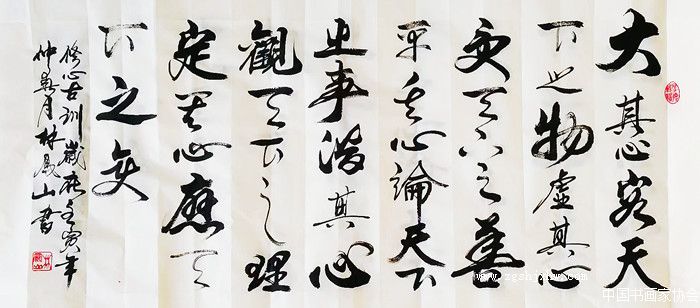 大其心容天
下之物虚其心
受天下之善
平其心論天下
之事潜其心
觀天下之理
定其心應天
下之变
修心古训歲在壬寅年
仲春月林山書
中国书画家协会